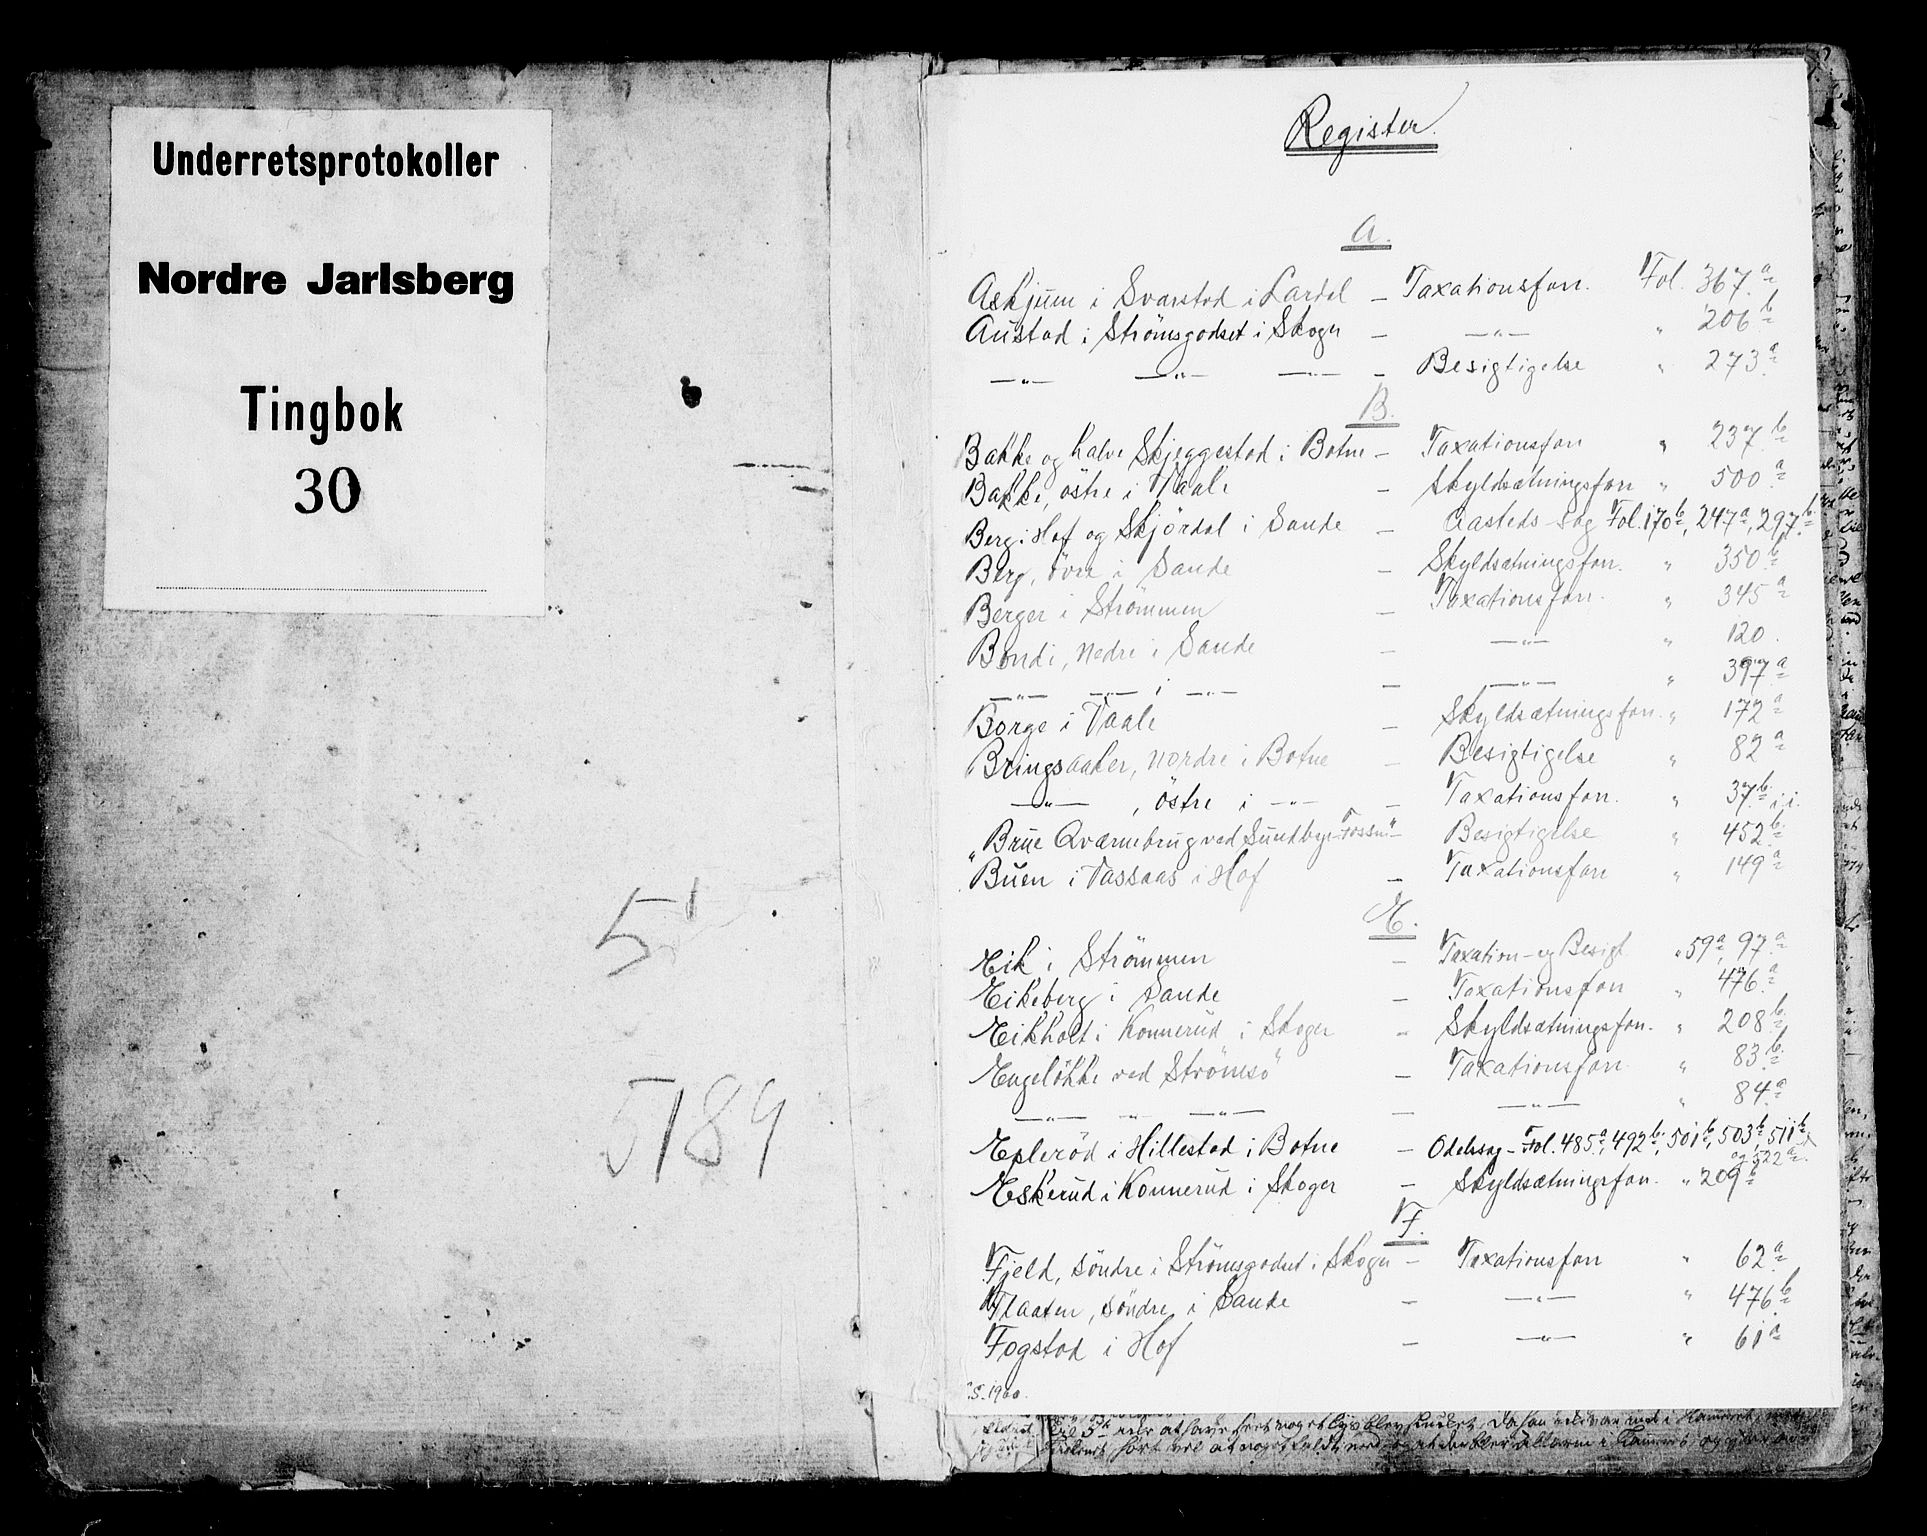 Underretsprotokoller
Nordre Jarlsberg
Tingbok
30
5
5189
Register.
A.
Askjum i Svarstad i Lardal – Taxationsforr. Fol. 367.a
Austad i Strömsgodset i Skoger – –"– " 206 b
–"– –"– –"– – Besigtigelse " 273 a
B.
Bakke og halve Skjeggestad i Botne – Taxationsforr " 237 b
Bakke, östre i Vaale – Skyldsætningsforr " 500 a
Berg i Hof og Skjördal i Sande – Aasteds-sag Fol. 170 b, 247 a, 297 b
Berg, övre i Sande – Skyldsætningsforr. " 350 b
Berger i Strömmen – Taxationsforr. " 345 a
Bondi, Nedre i Sande – –"– " 120.
–"– –"– i –"– – –"– " 397 a
Borge i Vaale – Skyldsætningsforr. " 172 a
Bringsaaker, nordre i Botne – Besigtigelse " 82 a
–"– , östre i –"– – Taxationsforr. " 37 b
"Brue Qværnebrug ved Sundbye-Fossen" – Besigtigelse " 452 b
Buen i Vassaas i Hof – Taxationsforr " 149 a
E.
Eik i Strömmen – Taxation- og Besigt. " 59 a, 97 a
Eikeberg i Sande – Taxationsforr " 476 a
Eikholt i Konnerud i Skoger – Skyldsætningsforr. " 208 b
Engelökke ved Strömsö – Taxationsforr. " 83 b
–"– –"– –"– – –"– " 84 a
Epleröd i Hillestad i Botne – Odelssag – Fol. 485 a, 492 b, 501 b, 503 b, 511 b
og 522 a
Eskerud i Konnerud i Skoger – Skyldsætningsforr. " 209 b
F.
Fjeld, söndre i Strömsgodset i Skoger – Taxationsforr " 62 a
Flaaten, söndre, i Sande – –"– " 476 b
Fogstad i Hof – –"– " 61 a
S. 1960.